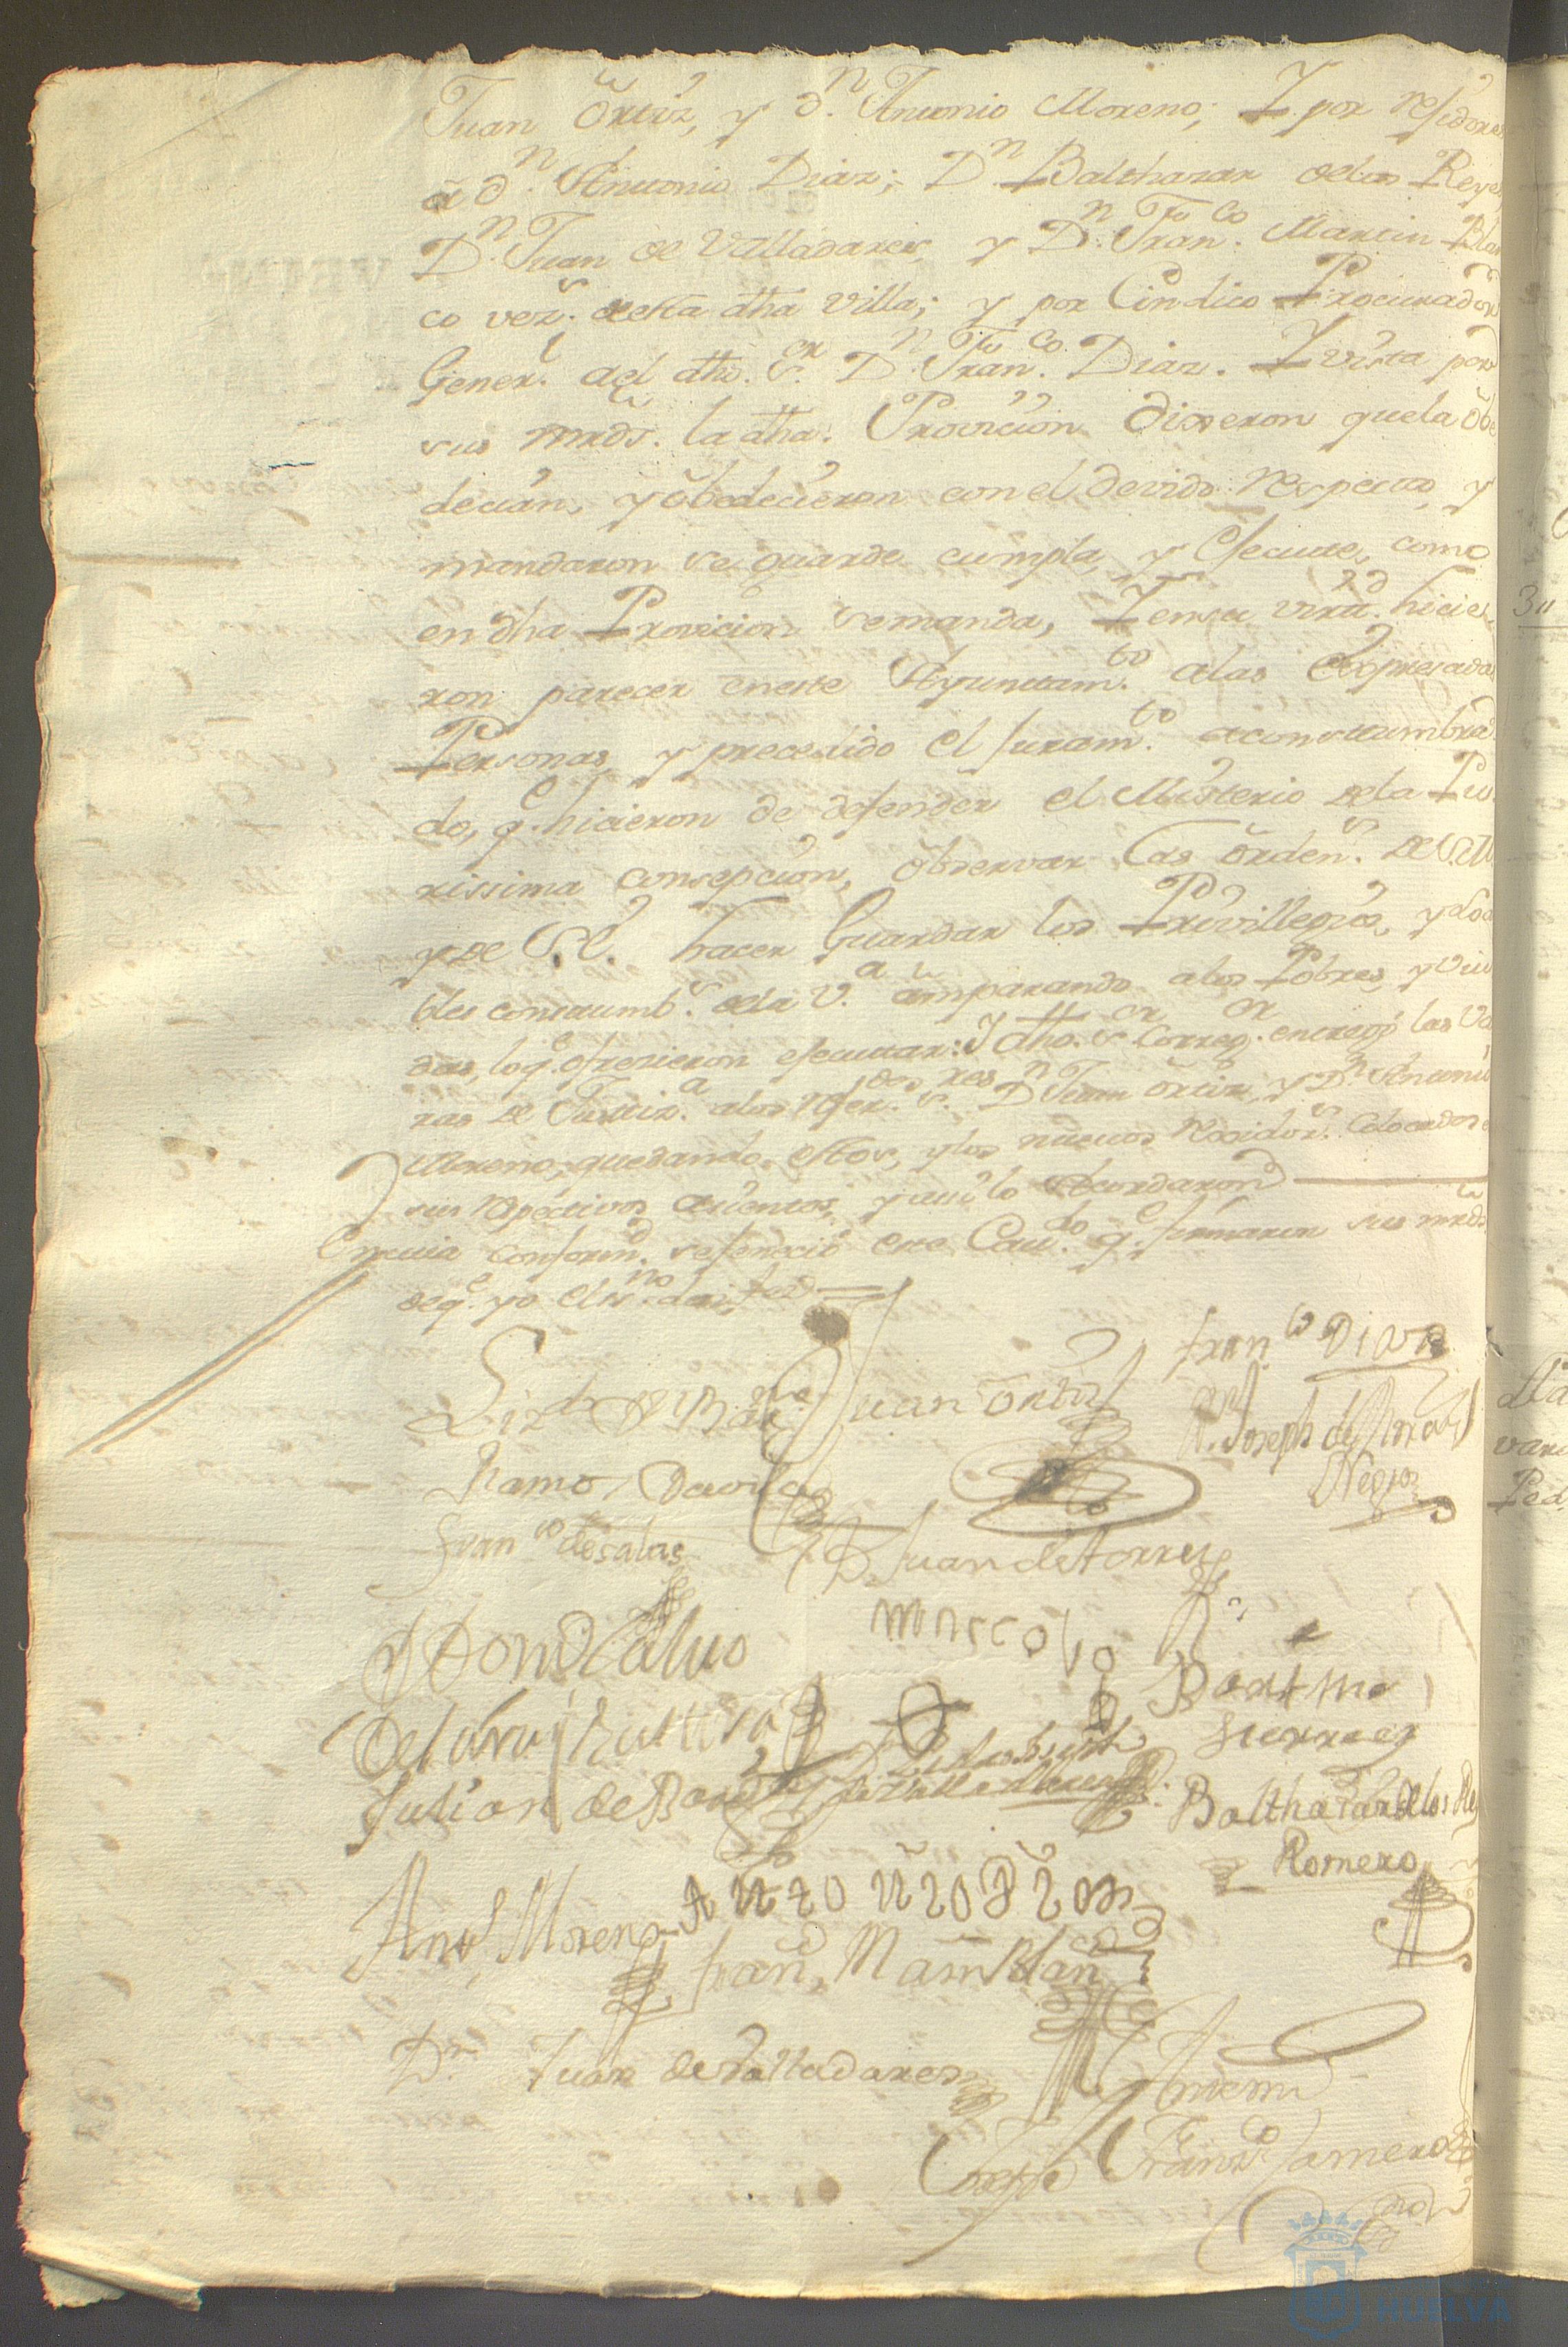 Juan Ortiz, y dn. Antonio Moreno; Y por residores
a dn. Antonio Diaz; Dn. Balthazar delos Reyes
Dn. Juan de Valladares, y Dn. Franco. Martin Blan
co vezs. desta dha Villa; y por Cindico Procurador
Generl. del dho. sr. Dn. Franco. Diaz. Y vista por
sus mrds. la dha. Provicion Dixeron quela obe
decian, y obedecieron con el devido respecto, y
mandaron se guarde cumpla, y Execute, como
en dha Provicion se manda, Y ensu virtd. hicie
ron parecer eneste Ayuntamto. alas Expresadas
Personas, y precedido el Juramto. aconstumbra
do, qe. hicieron de defender el Misterio dela Pu
rissima Consepcion, observar las ordens. de S.M.
y de S.E. hacer Guardar los Privillegios, y Loa
bles constumbs. dela Va. amparando alos Pobres, y Viu
das, loqe. ofrezieron executar: Y dho. sr. Corregor. entregó las Va
ras de Justiza. alos referdos. sres. Dn Juan Ortiz, y Dn. Antonio
Moreno, quedando estos, y los nuevos Regidors. Colocados en
sus respectivos acientos, y assi lo Acordaron
En cuia conformd. sefenecio este Cavdo. qe. firmaron sus mrds
deqe. yo el esno. doi fee
Juan Ortiz
Franco Diaz
Ramos Davila
Dn. Joseph de
Negro
Franco de salas
D Juan de torres
Bartme
Julian de
Balthazar delos Rey
Romero
Anto. Moreno
Antonio Dias
Fran, Martn Blan
Dn. Juan de Valladares
Antemi
Jorge Franzo. Romero
HUELVA